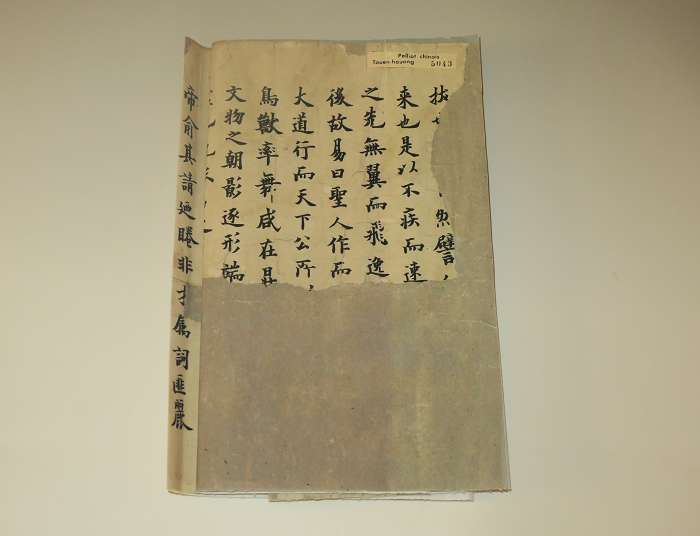 Pelliot chinois
Touen-houang 5043
譬
来也是以不疾而速
之先無翼而飛逸
後故易曰聖人作而
大道行而天下公所
鳥獸率舞咸在
文物之朝影逐形端
帝俞其請廼睠非才属詞匪麗